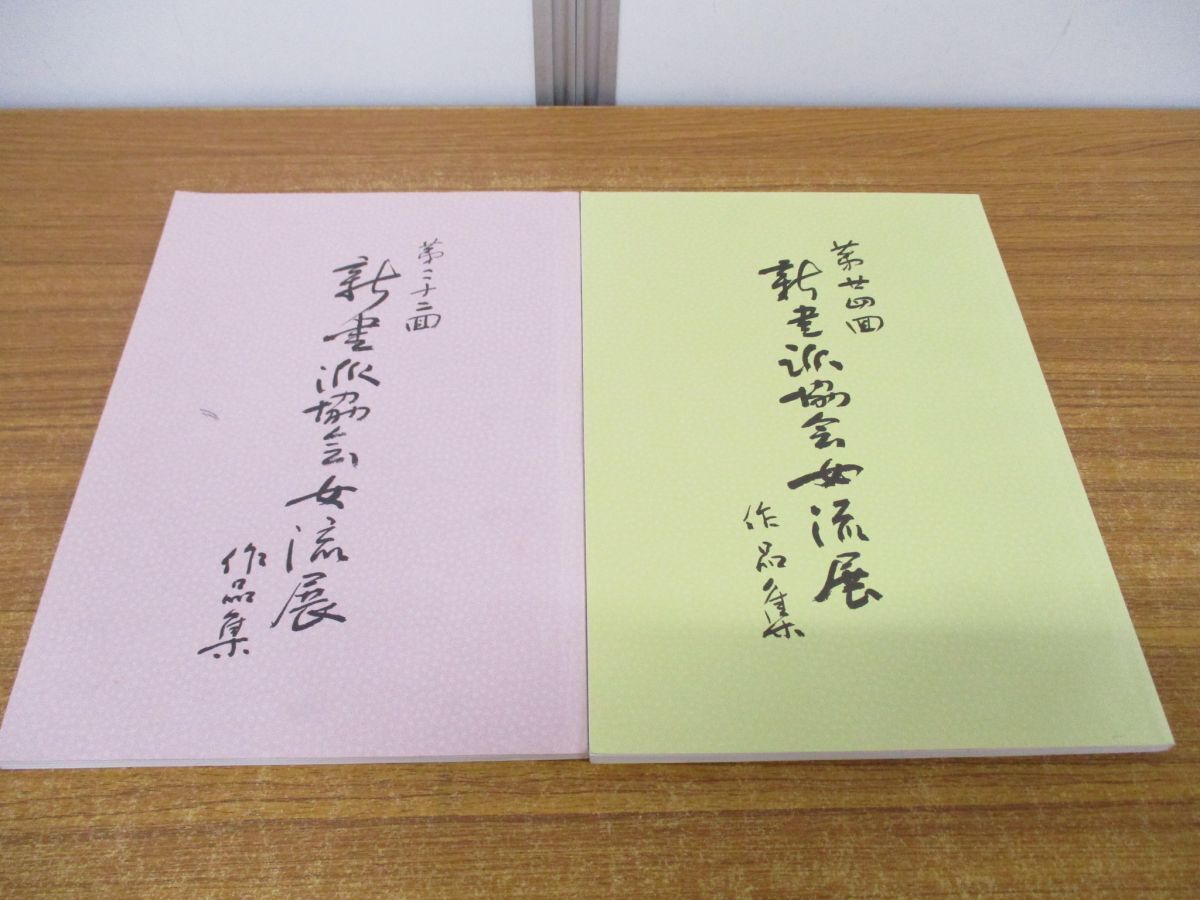 第二十二回
新書派協会女流展
作品集
第廿四回
新書派協会女流展
作品集